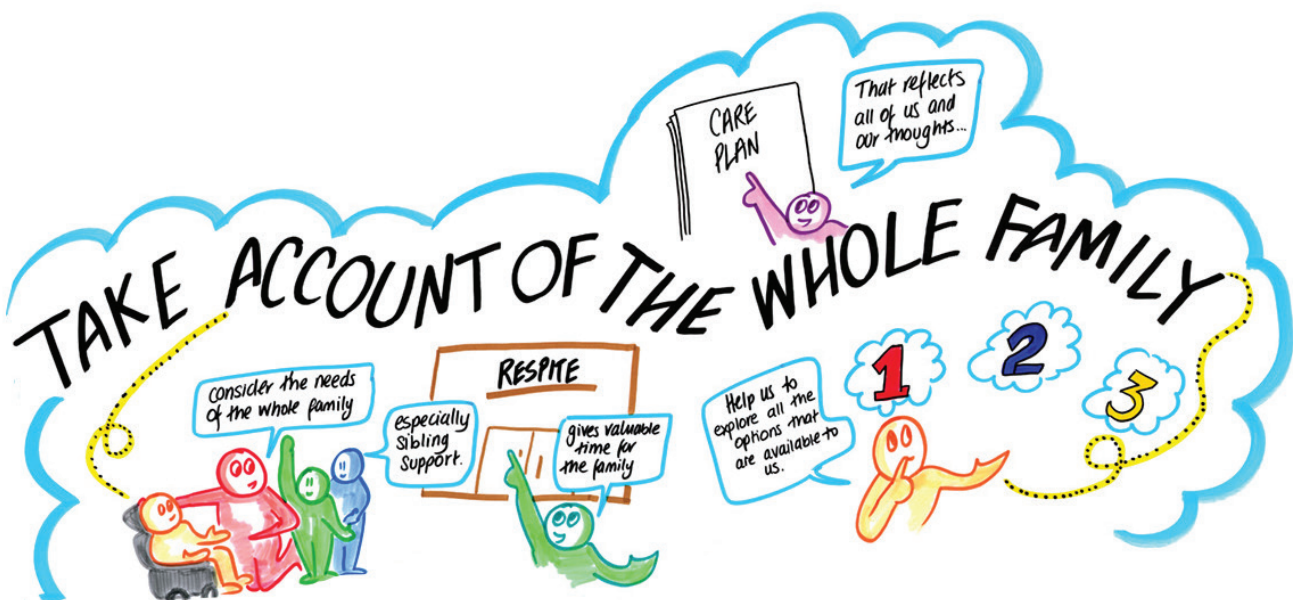 CARE
PLAN
That reflects
all of us and
our thoughts...
TAKE ACCOUNT OF THE WHOLE FAMILY
consider the needs
of the whole family
especially
sibling
support.
RESPITE
gives valuable
time for
the family
Help us to
explore all the
options that
are available to
us.
1
2
3